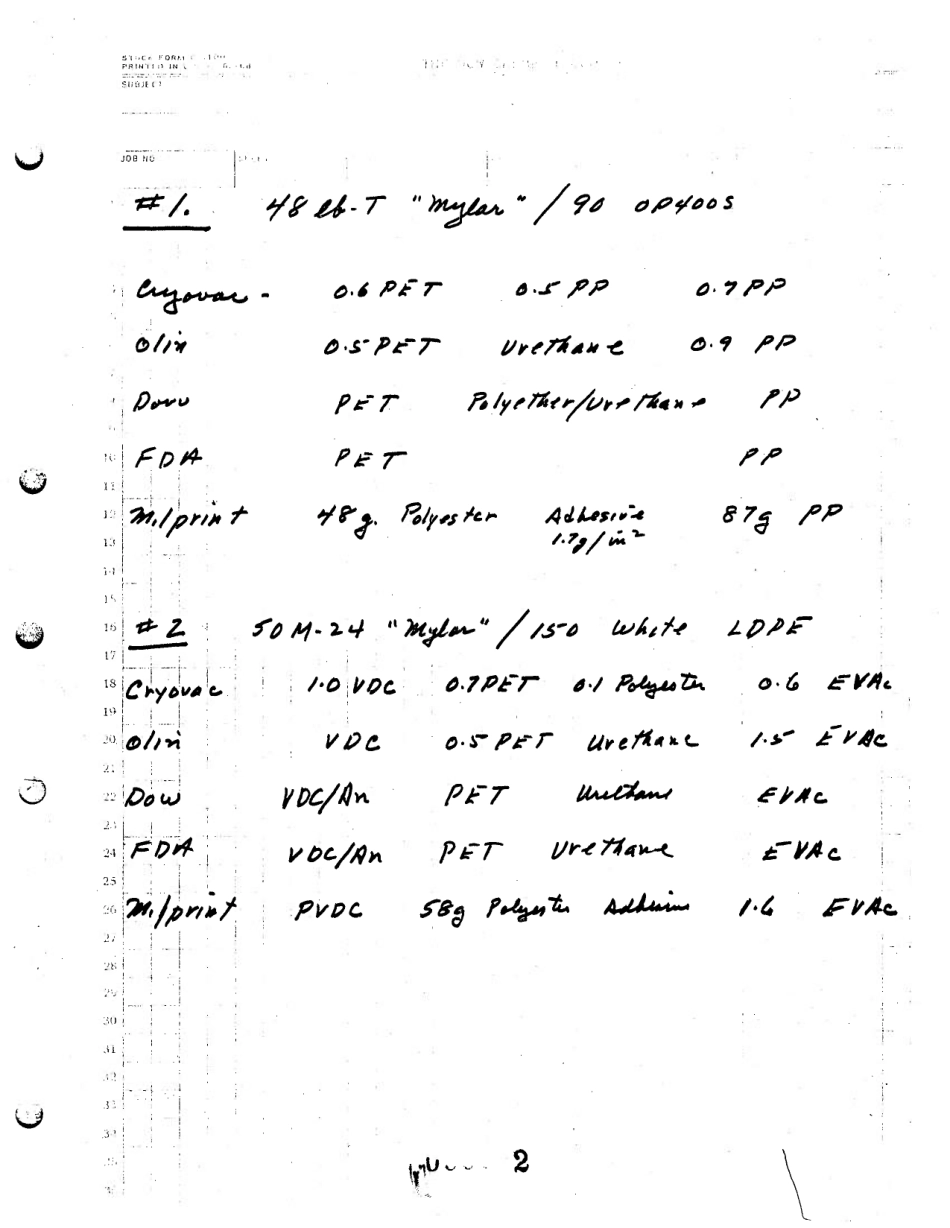 STOCK FORM
PRINTED IN
SUBJECT
JOB NO
#1. 48 lb-T "Mylar" / 90 OP400S
Cryovac - 0.6 PET 0.5 PP 0.7 PP
Olin 0.5 PET Urethane 0.9 PP
Dow PET Polyether/Urethane PP
10 FDA PET PP
11
12 Milprint 48 g. Polyester Adhesive 87g PP
13 1.7g/in²
14
15
16 #2 50 M-24 "Mylar" / 150 White LDPE
17
18 Cryovac 1.0 VDC 0.7 PET 0.1 Polyester 0.6 EVAc
19
20 Olin VDC 0.5 PET Urethane 1.5 EVAc
21
22 Dow VDC/An PET Urethane EVAc
23
24 FDA VDC/An PET Urethane EVAc
25
26 Milprint PVDC 58g Polyester Adhesive 1.6 EVAc
27
28
29
30
31
32
33
2